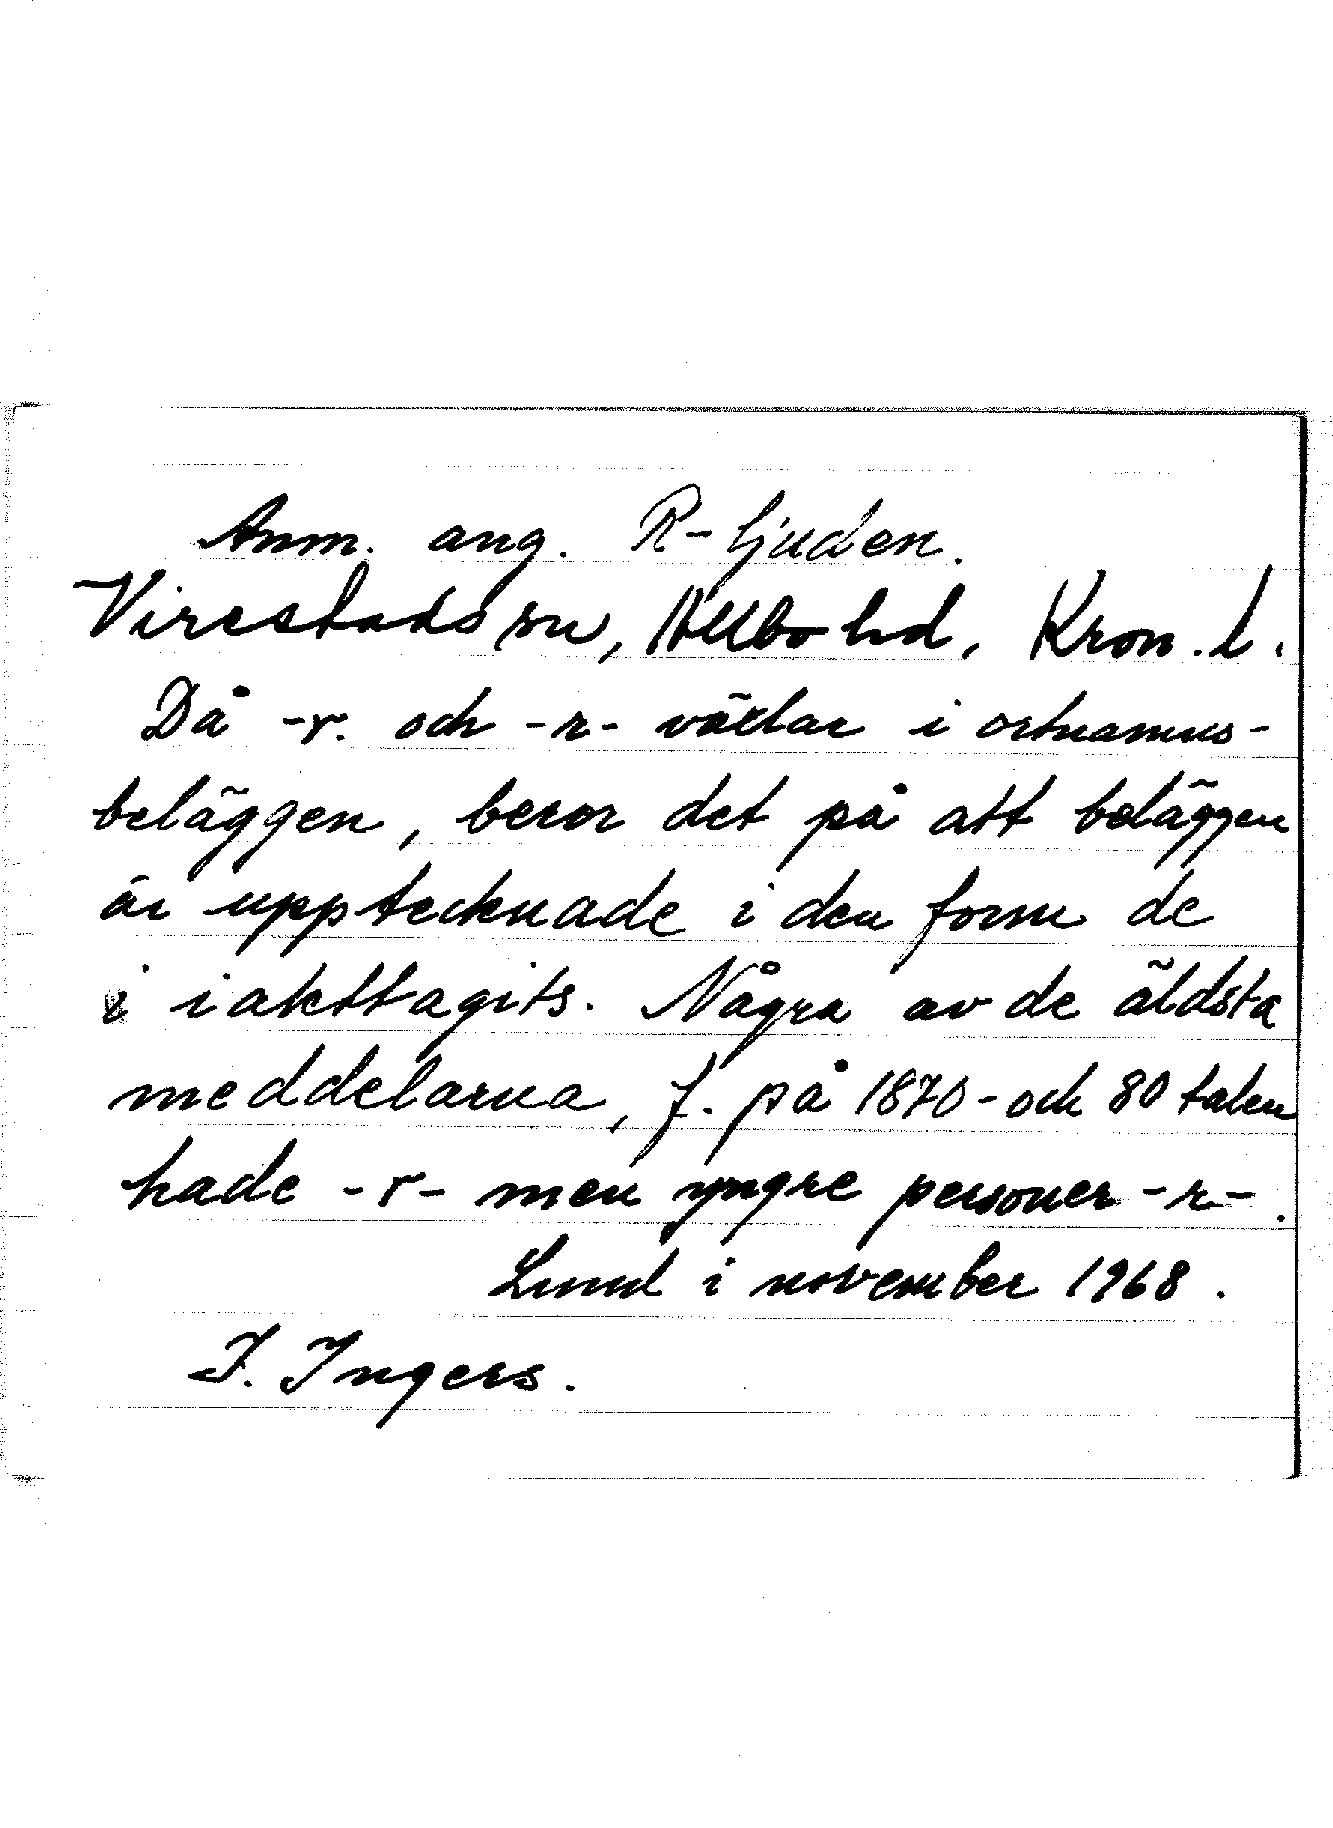 Anm. ang. R-ljuden.
Virestads sn, Allbo hd, Kron. l.
Då -r. och -r- växlar i ortnamns-
beläggen, beror det på att beläggen
är upptecknade i den form de
i iakttagits. Några av de äldsta
meddelarna, f. på 1870- och 80 talen
hade -r- men yngre personer -r-.
Lund i november 1968.
I. Ingers.